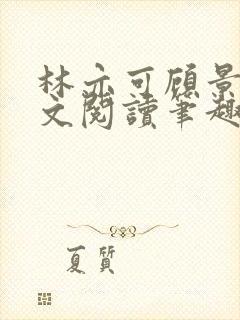 林亦可顾景
文閱讀筆趣
夏質